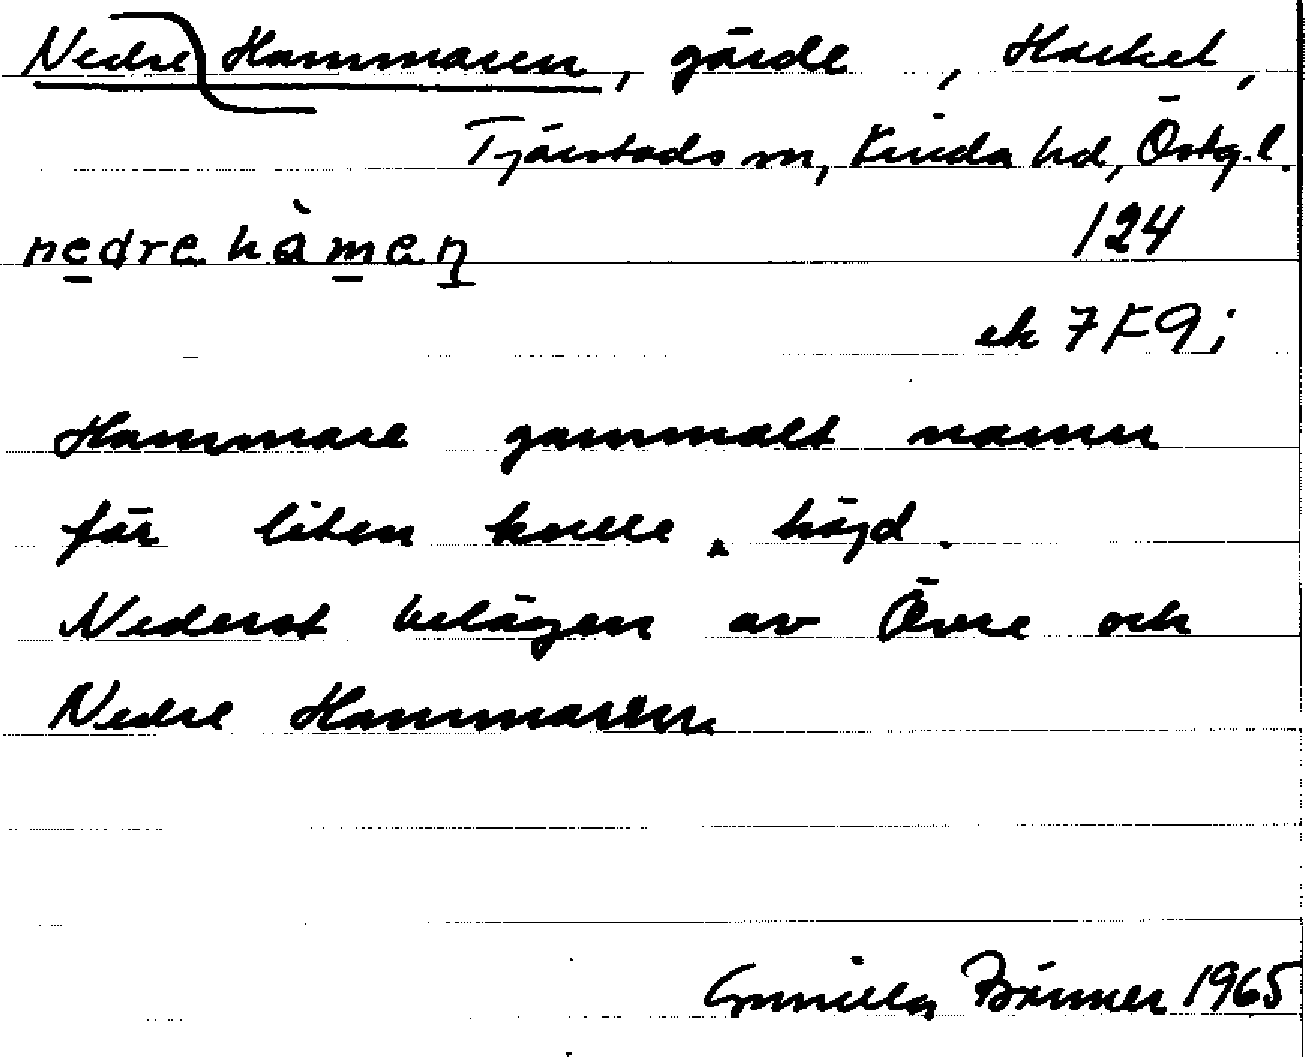 Nedre Hammaren, gärde, Harkel,
Tjärstads sn, Kinda hd, Östg.l.
nedre hàmen 124
ek 7F9j
Hammare gammalt namn
för liten kulle, höjd.
Nederst belägen av Övre och
Nedre Hammaren.
Gunilla 1965